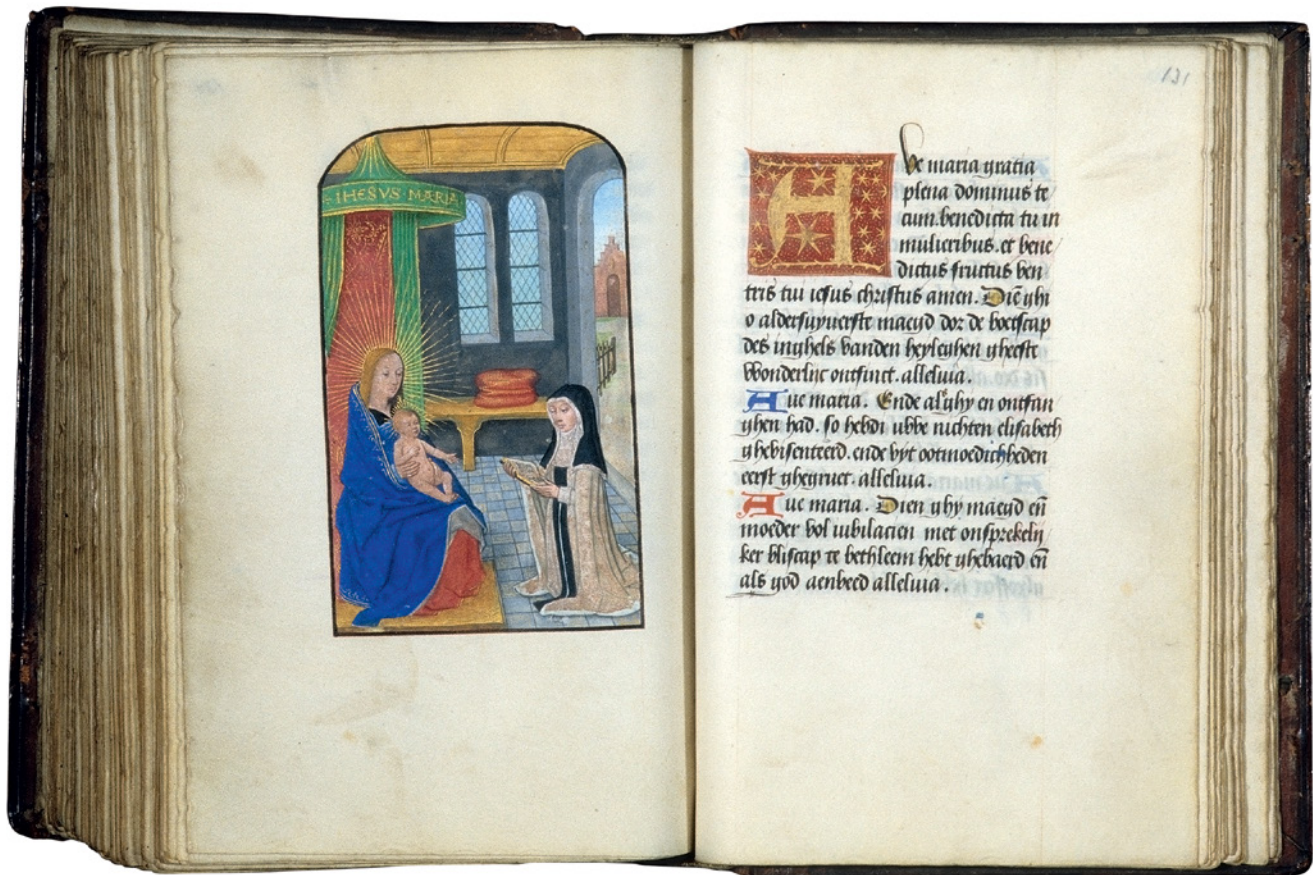 IHESVS MARIA
131
Ave maria gratia
plena dominus te
cum. benedicta tu in
mulieribus. et bene
dictus fructus ven
tris tui iesus christus amen. Diē ghi
o aldersuyuerste maegd dor de boetscap
des inghels vanden heyleghen gheeste
wonderlijc ontfinct. alleluia.
Aue maria. Ende als ghy en ontfan
ghen had. so hebdi uwe nichten elisabeth
ghevisenteerd. ende vyt ootmoedichheden
eerst ghegruet. alleluia.
Aue maria. Dien ghy maegd eñ
moeder vol iubilacien met onsprekelij
ker bliscap te bethleem hebt ghebaerd eñ
als god aenbeed alleluia.